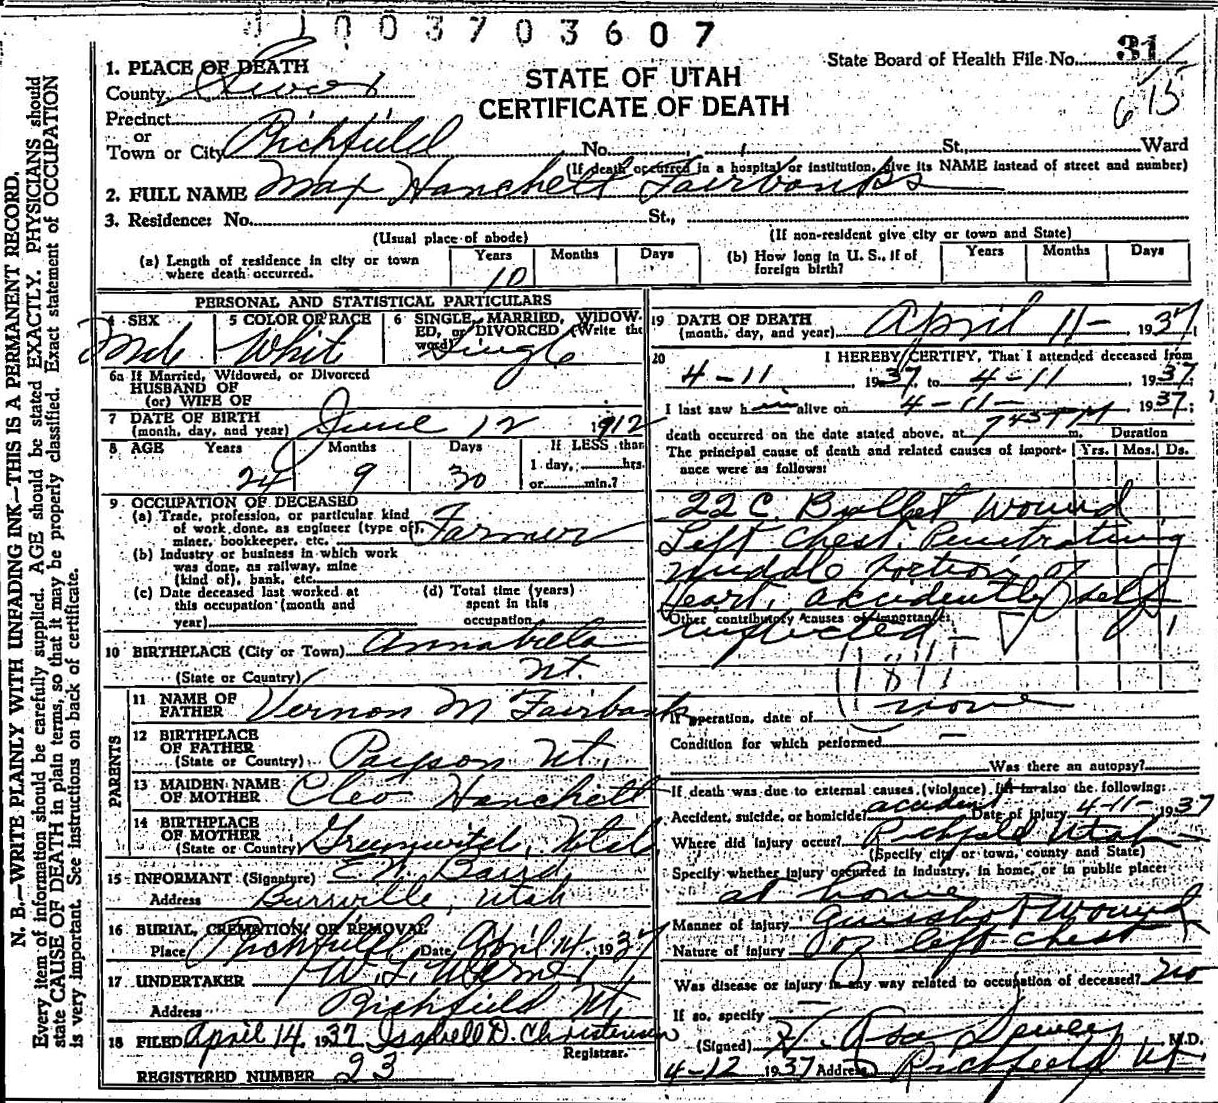 0 1 0 0 3 7 0 3 6 0 7
State Board of Health File No. 31
615
STATE OF UTAH
CERTIFICATE OF DEATH
1. PLACE OF DEATH
County Sevier
Precinct
or
Town or City Richfield No. St., Ward
(If death occurred in a hospital or institution, give its NAME instead of street and number)
2. FULL NAME Max Hanchett Fairbanks
3. Residence: No. St.,
(Usual place of abode) (If non-resident give city or town and State)
(a) Length of residence in city or town where death occurred. Years 10 Months Days
(b) How long in U. S., if of foreign birth? Years Months Days
PERSONAL AND STATISTICAL PARTICULARS
4 SEX Male
5 COLOR OR RACE White
6 SINGLE, MARRIED, WIDOWED, or DIVORCED (Write the word) Single
6a If Married, Widowed, or Divorced
HUSBAND OF
(or) WIFE OF
7 DATE OF BIRTH (month, day, and year) June 12 1912
8 AGE Years 24 Months 9 Days 30 If LESS than 1 day, hrs. or min.?
9 OCCUPATION OF DECEASED
(a) Trade, profession, or particular kind of work done, as engineer (type of), miner, bookkeeper, etc. Farmer
(b) Industry or business in which work was done, as railway, mine (kind of), bank, etc.
(c) Date deceased last worked at this occupation (month and year)
(d) Total time (years) spent in this occupation
10 BIRTHPLACE (City or Town) Annabella
(State or Country) Ut.
PARENTS
11 NAME OF FATHER Vernon M Fairbank
12 BIRTHPLACE OF FATHER (State or Country) Payson Ut.
13 MAIDEN NAME OF MOTHER Cleo Hanchett
14 BIRTHPLACE OF MOTHER (State or Country) Greenwitch, Utah
15 INFORMANT (Signature) E N. Baird
Address Burrville, Utah
16 BURIAL, CREMATION, OR REMOVAL
Place Richfield Date April 14, 1937
17 UNDERTAKER
Address Richfield Ut
18 FILED April 14, 1937 Isabell D. Christensen
Registrar.
REGISTERED NUMBER 23
19 DATE OF DEATH (month, day, and year) April 11- 1937
20 I HEREBY CERTIFY, That I attended deceased from
4-11, 1937 to 4-11, 1937
I last saw him alive on 4-11- 1937;
death occurred on the date stated above, at 745 PM m. Duration
The principal cause of death and related causes of importance were as follows: Yrs. Mos. Ds.
22 C Bullet wound
Left Chest. Penetrating
middle portion of
Heart, accidently self
Other contributory causes of importance:
inflicted
If operation, date of none
Condition for which performed
Was there an autopsy?
If death was due to external causes (violence) fill in also the following:
Accident, suicide, or homicide? accident Date of injury 4-11- 1937
Where did injury occur? Richfield Utah
(Specify city or town, county and State)
Specify whether injury occurred in industry, in home, or in public place:
at home
Manner of injury gunshot wound
Nature of injury of left chest
Was disease or injury in any way related to occupation of deceased? no
If so, specify
(Signed) Asa Dewey M.D.
4-12 1937 Address Richfield Ut.
N. B.—WRITE PLAINLY WITH UNFADING INK—THIS IS A PERMANENT RECORD.
Every item of information should be carefully supplied. AGE should be stated EXACTLY. PHYSICIANS should
state CAUSE OF DEATH in plain terms, so that it may be properly classified. Exact statement of OCCUPATION
is very important. See instructions on back of certificate.